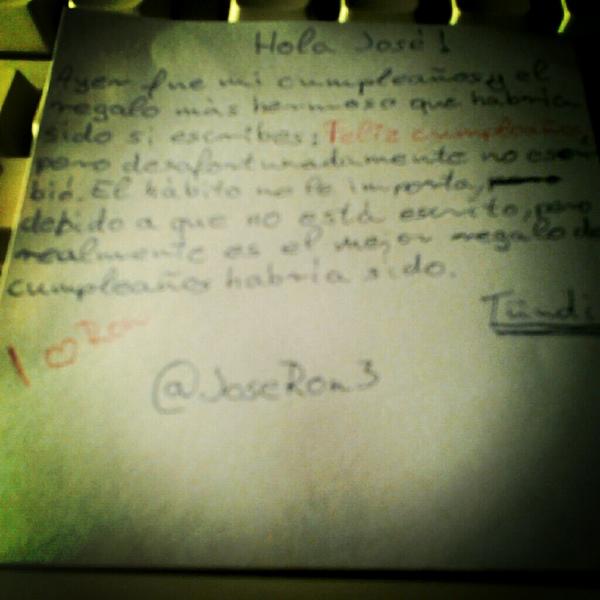 Hola José!
Ayer fue mi cumpleaños, y el
regalo más hermoso que habría
sido si escribes: Feliz cumpleaños,
pero desafortunadamente no escri
bió. El hábito no le importa,
debido a que no está escrito, pero
realmente es el mejor regalo de
cumpleaños habría sido.
Tündi
I ♡ Ron
@JoseRon3